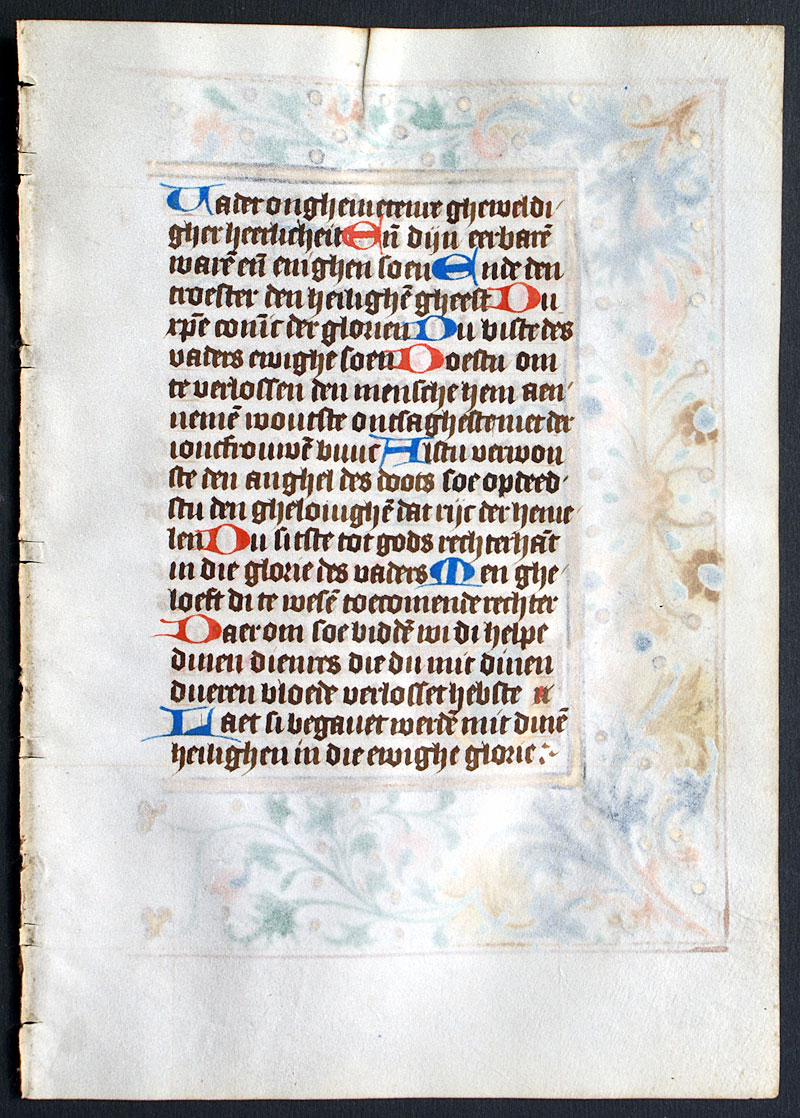 Uader onghemetenre gheweldi
gher heerlicheit Eñ dijn eerbarē
warē eñ enighen soen Ende den
troester den heilighē gheest Du
xp̄e coninc der glorien Du biste des
vaders ewighe soen Doestu om
te verlossen den mensche hem aen
nemē woutste ontsaghestu niet der
ioncfrouwē buuc Alstu verwon
ste den anghel des doots soe opdeed
stu den gheloiughē dat rijc der heme
len Du sitste tot gods rechterhāt
in die glorie des vaders Men ghe
loeft di te wesē toecomende rechter
Daer om soe biddē wi di helpe
dinen dienres die du mit dinen
dueren bloede verlosset hebste
Laet si begauet werdē mit dinē
heilighen in die ewighe glorie